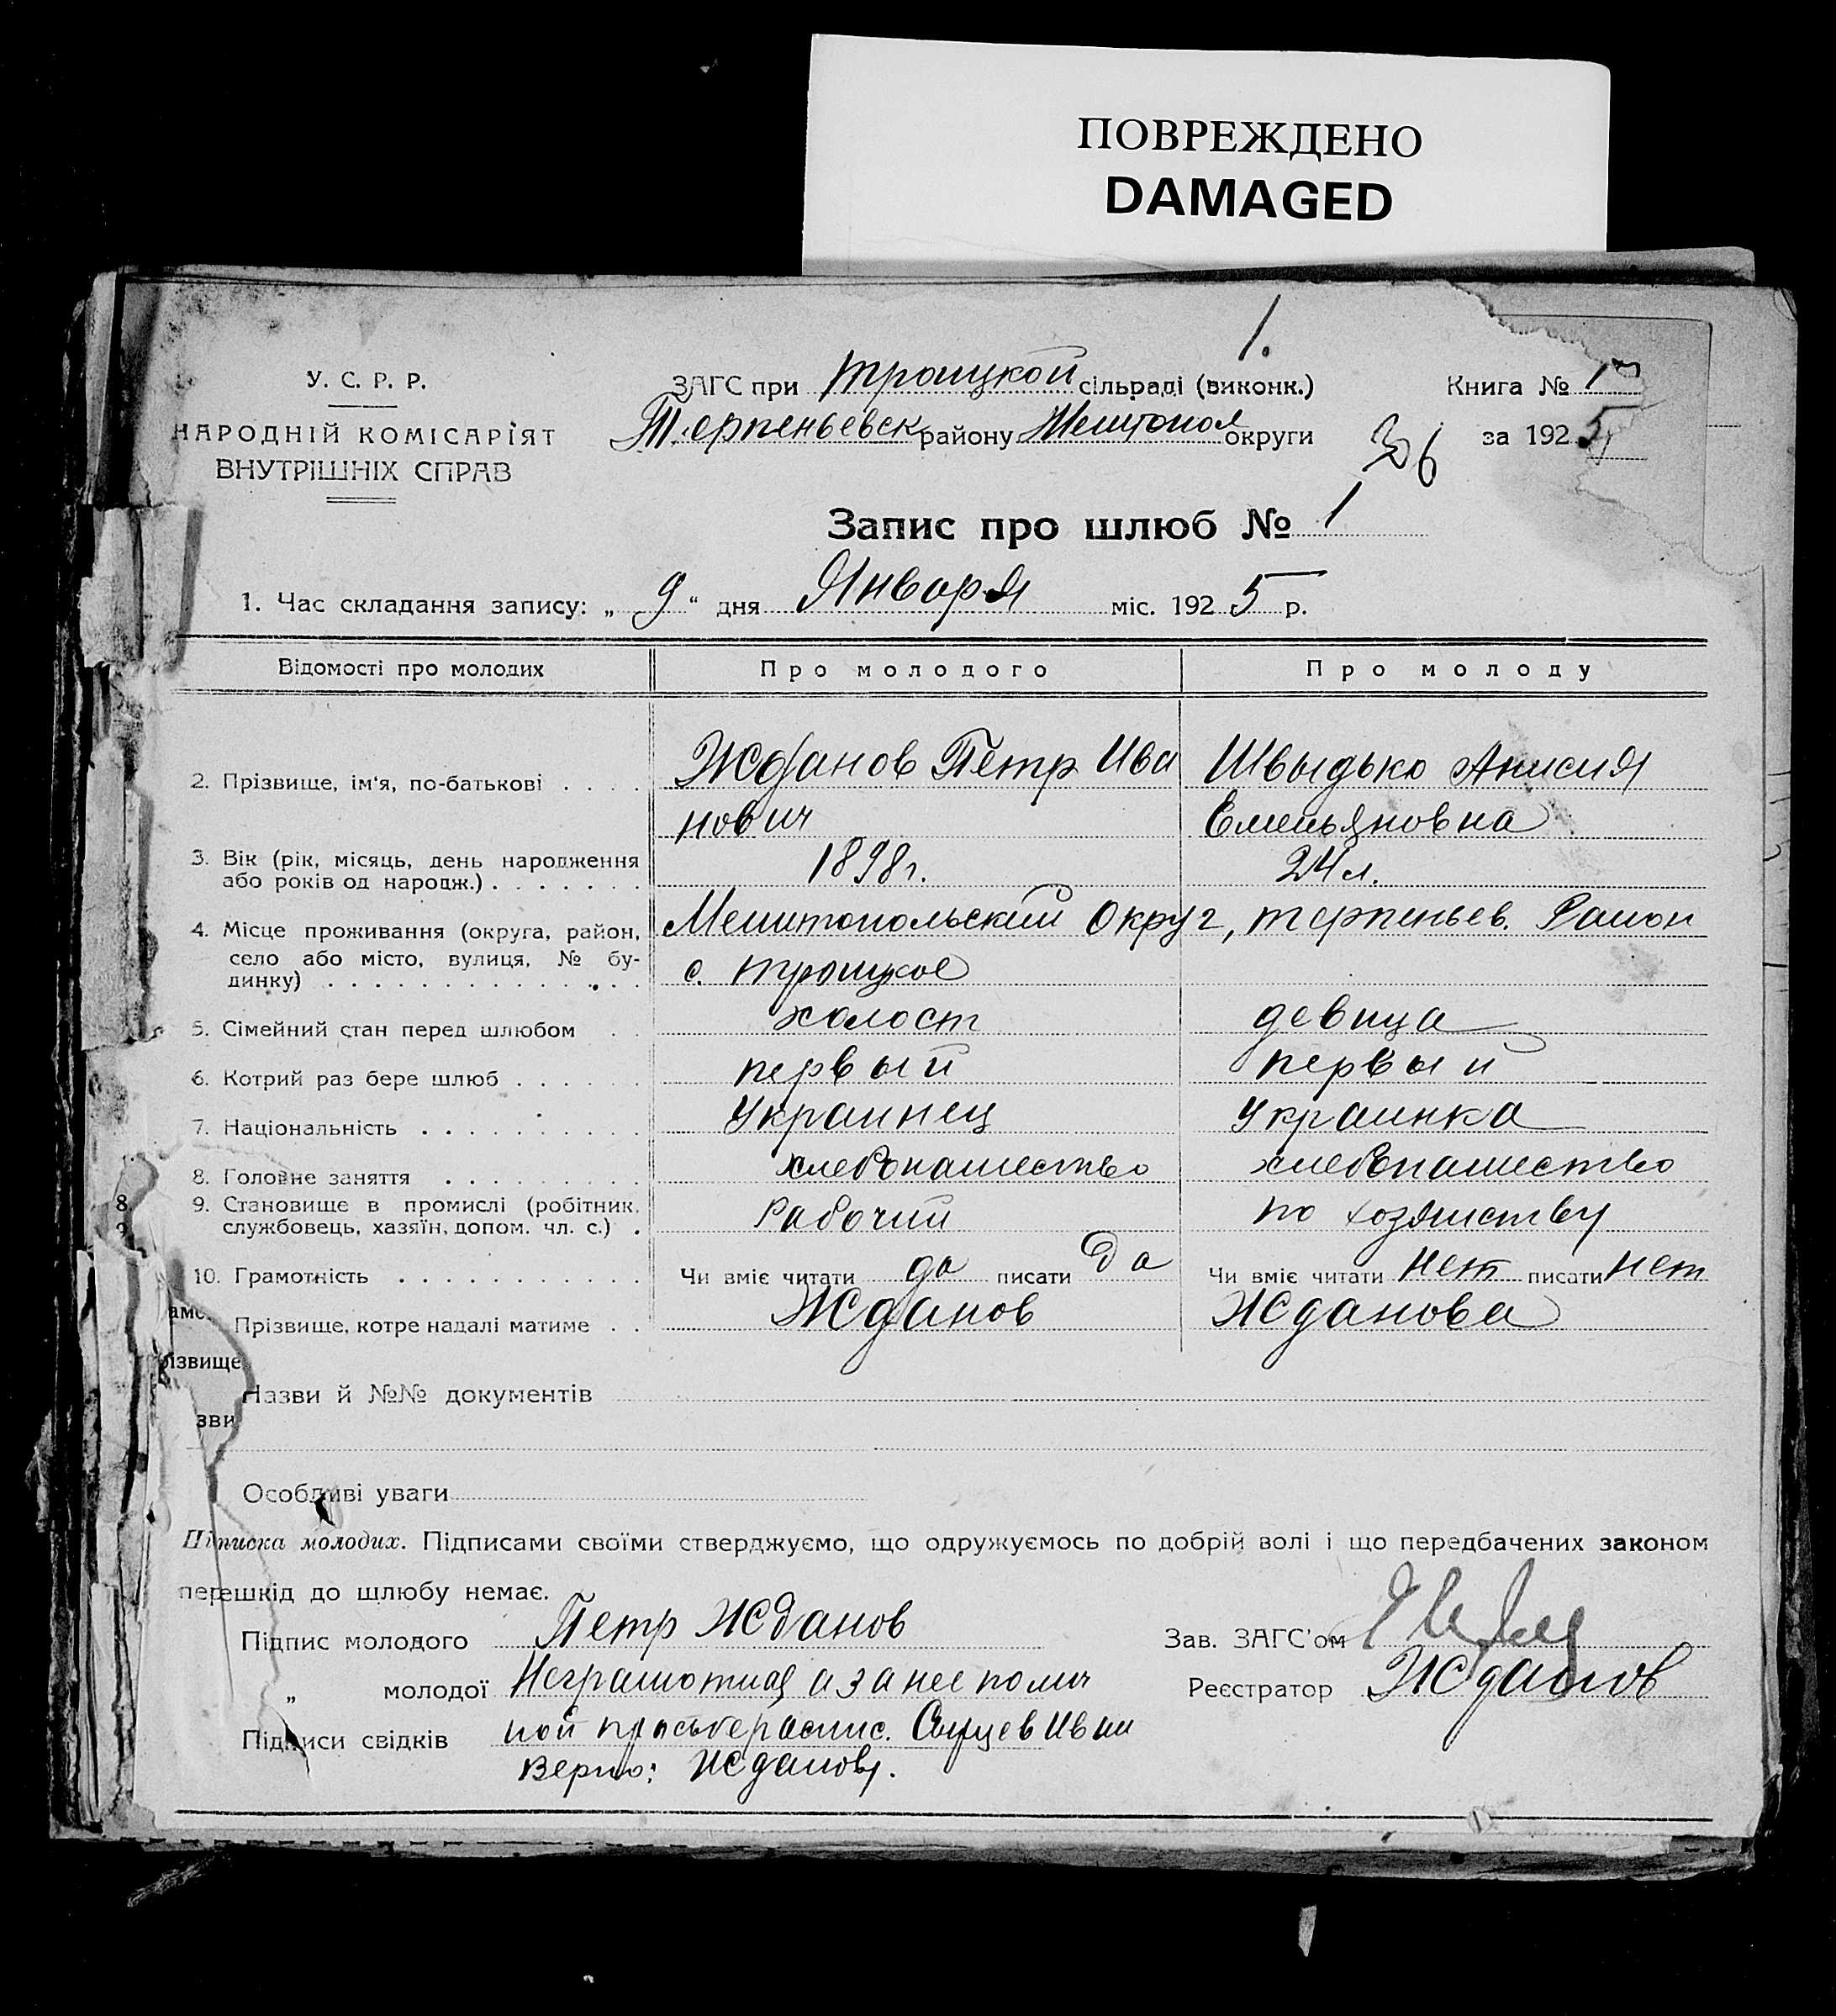 ПОВРЕЖДЕНО
DAMAGED
1.
У. С. Р. Р.
НАРОДНІЙ КОМІСАРІЯТ
ВНУТРІШНІХ СПРАВ
ЗАГС при Троицкой сільраді (виконк.)
Терпеньевск району Мелитопол округи
Книга № 1
за 1925
Запис про шлюб № 1
1. Час складання запису: „ 9 “ дня Января міс. 1925 р.
Відомості про молодих Про молодого Про молоду
2. Прізвище, ім'я, по-батькові . . . . Жданов Петр Ива Швыдько Анисия
нович Емельяновна
3. Вік (рік, місяць, день народження
або років од народж.) . . . . . . . 1898г. 24 л.
4. Місце проживання (округа, район, Мелитопольский Округ, Терпеньев. Район
село або місто, вулиця, № бу-
динку) . . . . . . . . . . . . . . с. Троицкое
5. Сімейний стан перед шлюбом . . холост девица
6. Котрий раз бере шлюб . . . . . . первый первый
7. Національність . . . . . . . . . . Украинец Украинка
8. Головне заняття . . . . . . . . . хлебопашество хлебопашество
9. Становище в промислі (робітник,
службовець, хазяїн, допом. чл. с.) . Рабочий по хозяиству
10. Грамотність . . . . . . . . . . . Чи вміє читати да писати да Чи вміє читати нет писати нет
Прізвище, котре надалі матиме . . Жданов Жданова
ізвище
Назви й №№ документів
зви
Особливі уваги
Підписка молодих. Підписами своїми стверджуємо, що одружуємось по добрій волі і що передбачених законом
перешкід до шлюбу немає.
Підпис молодого Петр Жданов Зав. ЗАГС'ом
„ молодої Неграмотная а за нее Реєстратор Жданов
Підписи свідків
Верно: Жданов